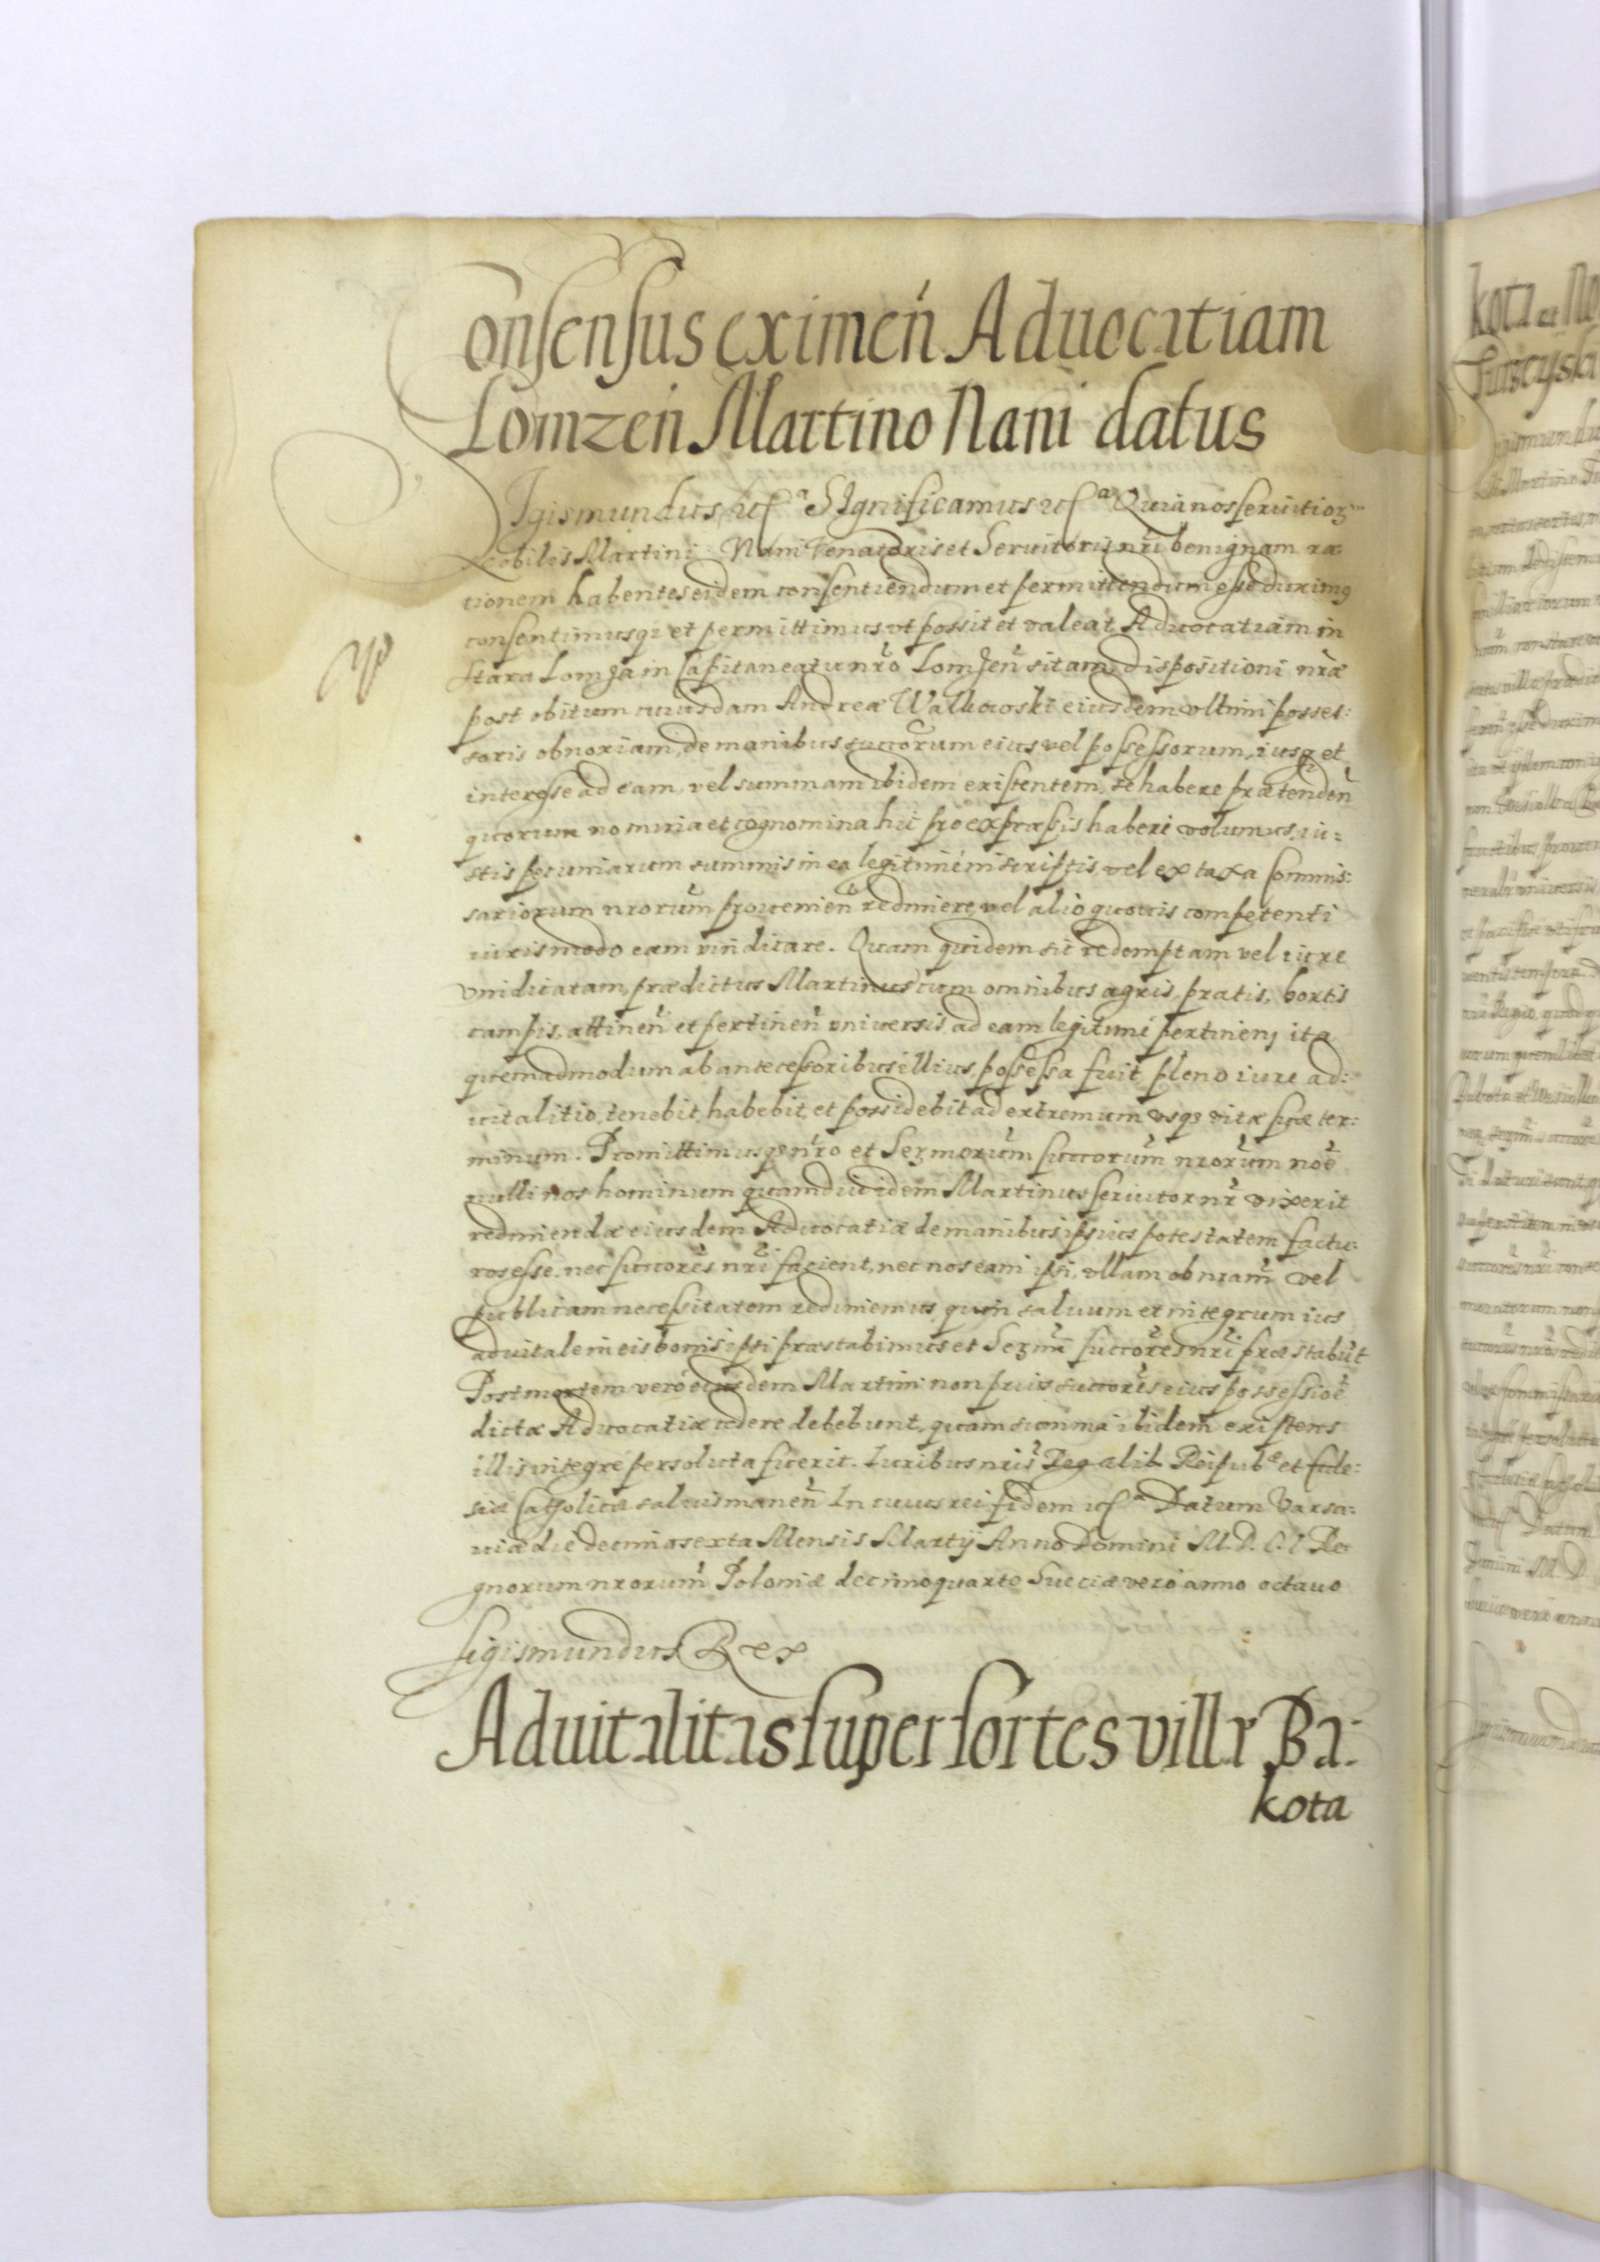 Consensus eximen Aduocatiam
Lomzen Martino Nani datus
Sigismundus etc Significamus etc Quia nos seruitior
Nobilis Martini Nani Venatoris et Seruitoris nri benignam ra
tionem habentes eidem consentiendum et permittendum esse duximus
consentimusq; et permittimus vt possit et valeat Aduocatiam in
Stara Lomza in Capitaneatu nro Lomzen sitam dispositioni nræ
post obitum cuiusdam Andreæ Walkowski eiusdem vltimi posses:
soris obnoxiam, de manibus succorum eius vel possessorum, iusq; et
interesse ad eam, vel summam ibidem existentem, se habere prætenden
quorum nomina et cognomina hic pro expressis haberi volumus, iu=
stis pecuniarum summis in ea legitime inscriptis, vel ex taxa Commis:
sariorum nrorum prouenien redimere, vel alio quouis competenti
iuris modo eam vindicare. Quam quidem sic redemptam vel iure
vindicatam, prædictus Martinus cum omnibus agris, pratis, hortis
campis, attinen et pertinen vniuersis, ad eam legitime pertinen, ita
quemadmodum ab antecessoribus illius possessa fuit, pleno iure ad:
uitalitio, tenebit, habebit, et possidebit ad extremum vsq; vitæ suæ ter:
minum. Promittimusq; nro et Sermorum succorum nrorum noe
nulli nos hominum quamdiu idem Martinus seruitor nr vixerit
redimendæ eiusdem Aduocatiæ de manibus ipsius potestatem factu:
ros esse. nec succores nri facient, nec nos eam ipsi, vllam ob nram vel
publicam necessitatem redimemus, quin saluum et integrum ius
aduitale in eis bonis ipsi præstabimus et Sermi succores nri præstabut
Post mortem vero eiusdem Martini non prius succores eius possessioe
dictæ Aduocatiæ cedere debebunt, quam summa ibidem existens
illis integre persoluta fuerit. Iuribus nris Regalib Reipub et Eccle:
siæ Catholicæ saluis manen In cuius rei fidem etc Datum Varsa:
uiæ die decima sexta Mensis Martij Anno Domini M.D.C.I Re
gnorum nrorum Poloniæ decimoquarto Sueciæ vero anno octauo
Sigismundus Rex
Aduitalitas super sortes villæ Ba:
kota